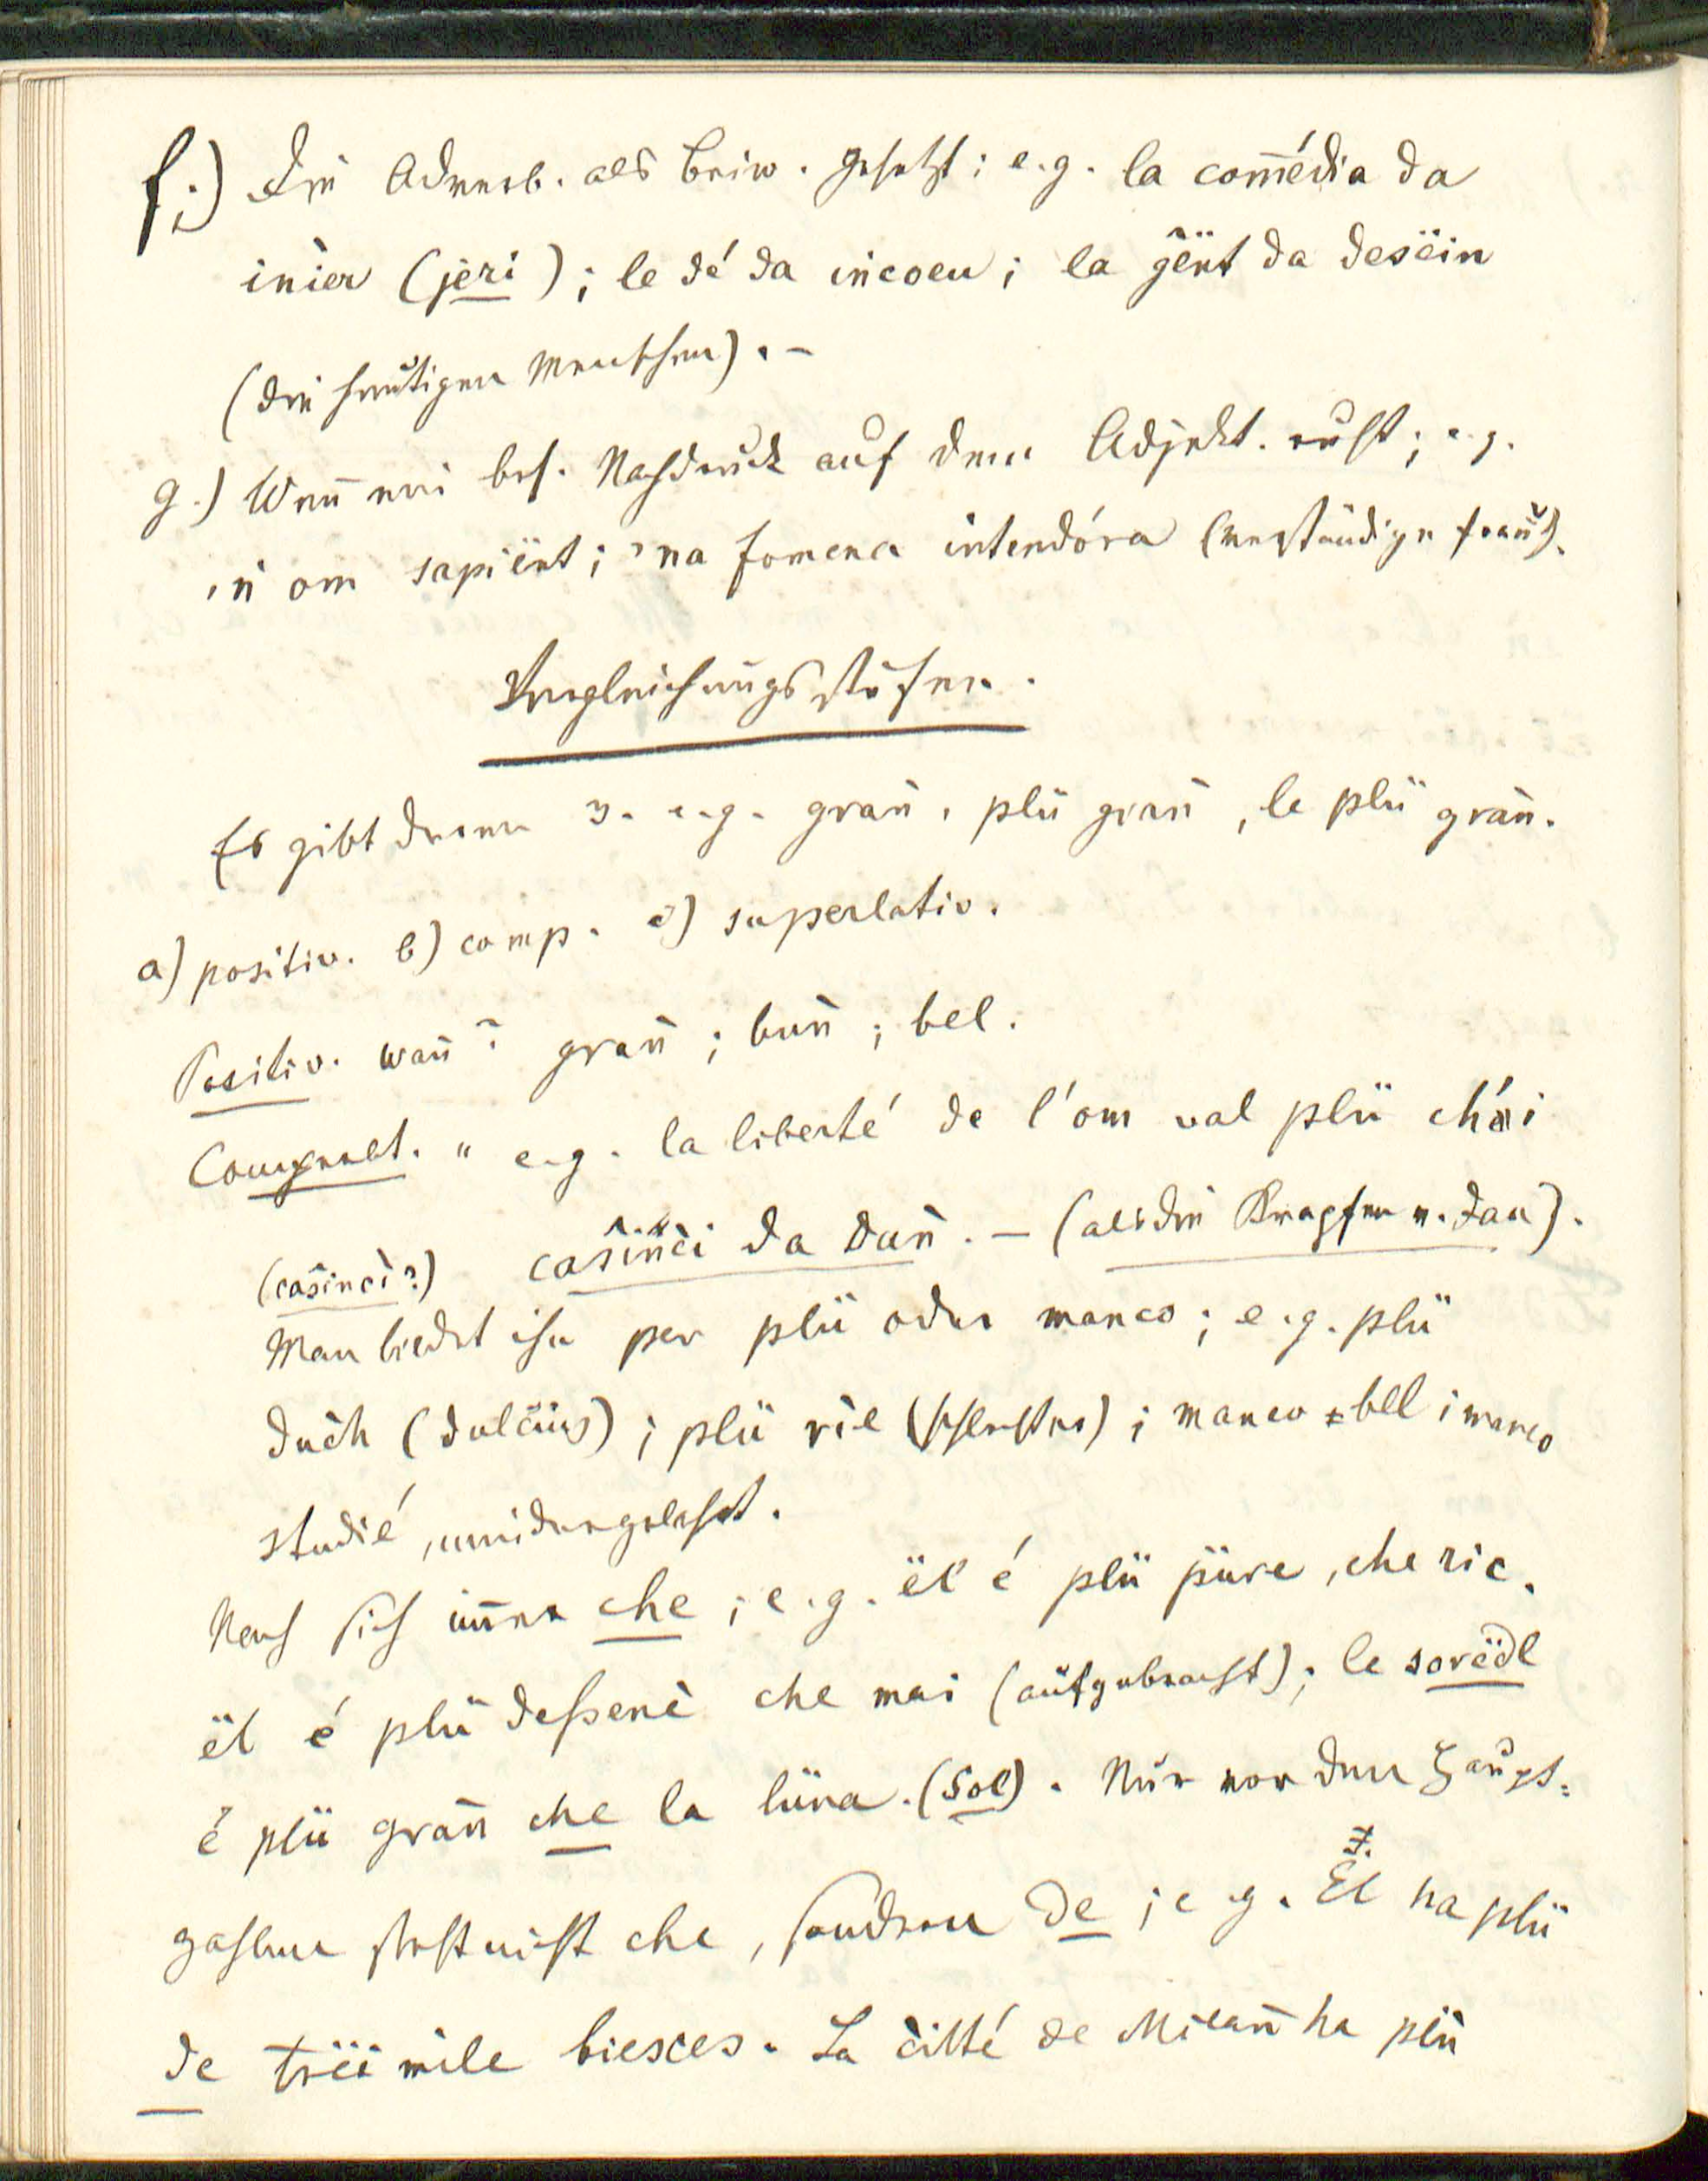 f.) Die Adverb. als Beiw. gesetzt; e.g. la com̄édia da
inier (jeri); le dé da incoeu; la gënt da desëin
(die heutigen Menschen). –
g.) Wen̄ ein bes. Nachdruck auf dem Adjekt. ruht; e.g.
'n om sapiënt; 'na fomena intendóra (verständige
Vergleichungsstufen.
Es gibt deren 3. e.g. gran̄, plü gran̄, le plü gran̄.
a) positiv. b) comp. c) superlativ.
Positiv. wan̄? gran̄; bun̄; bel.
Comparat. " e.g. la liberté de l'om val plü chói
(casinci?) casinci da dan̄. – (als die Krapfen v. dan).
Man bildet ihn per plü oder manco; e.g. plü
duch (dulcius); plü rie (schlechter); manco bell; manco
studié, mindergelehrt.
Nach sich im̄er che; e.g. ël é plü püre, che ric.
ël é plü desseně che mai (aufgebracht); le sorëdl
é plü gran̄ che la lüna. (Sol). Nur vor den Haupt-
zahlen steht nicht che, sondern de; e.g. El ha plü
de trëi mile biesces. La citté de Milan̄ ha plü